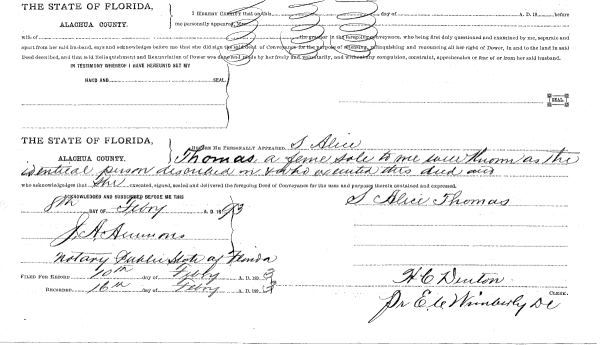 THE STATE OF FLORIDA,
ALACHUA COUNTY.
I HEREBY CERTIFY that on this day of A. D. 18 before
me personally appeared, Mrs.
wife of the grantor in the foregoing conveyance, who being first duly questioned and examined by me, separate and
apart from her said husband, says and acknowledges before me that she did sign the said deed of Conveyance for the purpose of releasing, relinquishing and renouncing all her right of Dower, in and to the land in said
Deed described, and that said Relinquishment and Renunciation of Dower was done and made by her freely and voluntarily, and without any compulsion, constraint, apprehension or fear of or from her said husband.
IN TESTIMONY WHEREOF I HAVE HEREUNTO SET MY
HAND AND SEAL
SEAL
THE STATE OF FLORIDA,
ALACHUA COUNTY.
BEFORE ME PERSONALLY APPEARED S Alice
Thomas, a feme sole to me well known as the
identical person described in & who executed this deed and
who acknowledges that She executed, signed, sealed and delivered the foregoing Deed of Conveyance for the uses and purposes therein contained and expressed.
ACKNOWLEDGED AND SUBSCRIBED BEFORE ME THIS
8th DAY OF Feby A. D. 1893
S Alice Thomas
J. A. Ammons
Notary Public State of Florida
FILED FOR RECORD 10th day of Feby A. D. 1893
RECORDED 16th day of Feby A. D. 1893
H C Denton
CLERK.
Pr E. C Wimberly DC